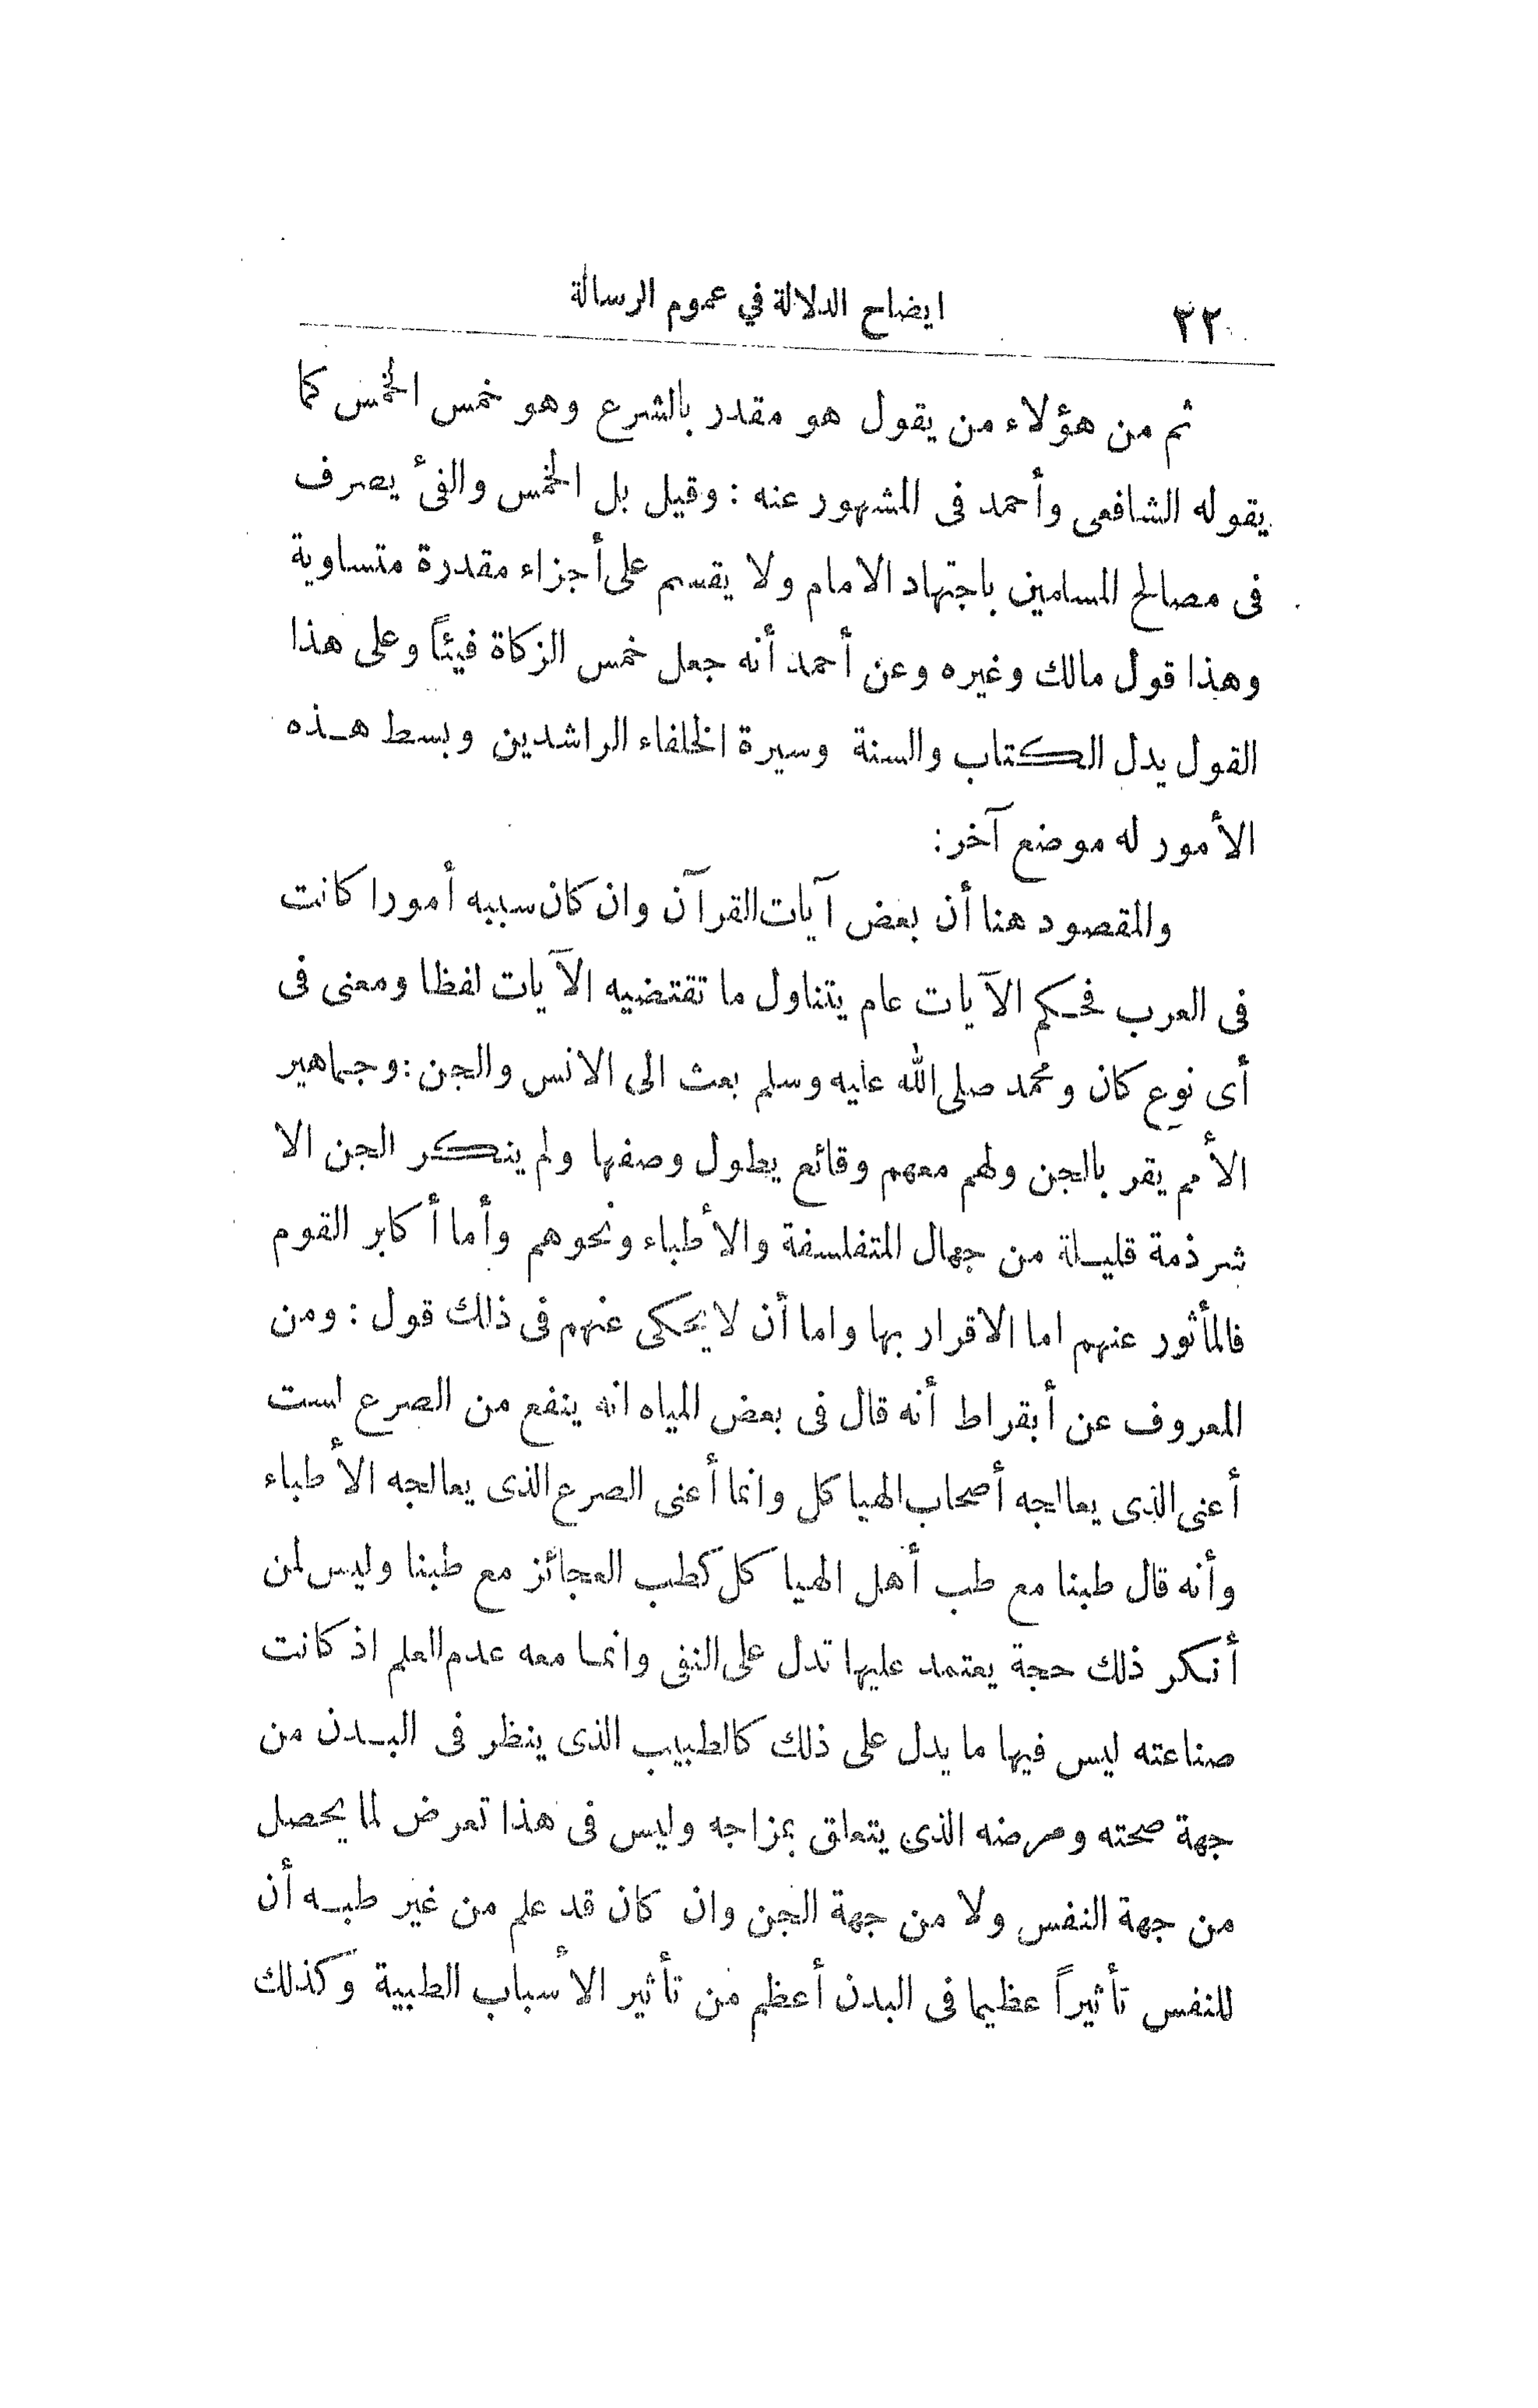 ٣٢
ايضاح الدلالة في عموم الرسالة
ثم من هؤلاء من يقول هو مقدر بالشرع وهو خمس الخمس كما
يقوله الشافعى وأحمد فى المشهور عنه : وقيل بل الخمس والفئ يصرف
فى مصالح المسلمين باجتهاد الامام ولا يقسم على أجزاء مقدرة متساوية
وهذا قول مالك وغيره وعن أحمد أنه جعل خمس الزكاة فيئاً وعلى هذا
القول يدل الكتاب والسنة وسيرة الخلفاء الراشدين وبسط هذه
الأمور له موضع آخر :
والمقصود هنا أن بعض آيات القرآن وان كان سببه أمورا كانت
فى العرب فحكم الآيات عام يتناول ما تقتضيه الآيات لفظا ومعنى فى
أى نوع كان ومحمد صلى الله عليه وسلم بعث الى الانس والجن : وجماهير
الأمم يقر بالجن ولهم معهم وقائع يطول وصفها ولم ينكر الجن الا
شرذمة قليلة من جهال المتفلسفة والأطباء ونحوهم وأما أكابر القوم
فالمأثور عنهم اما الاقرار بها واما أن لا يحكى عنهم فى ذلك قول : ومن
المعروف عن أبقراط أنه قال فى بعض المياه انه ينفع من الصرع لست
أعنى الذى يعالجه أصحاب الهياكل وانما أعنى الصرع الذى يعالجه الأطباء
وأنه قال طبنا مع طب أهل الهياكل كطب العجائز مع طبنا وليس لمن
أنكر ذلك حجة يعتمد عليها تدل على النفى وانما معه عدم العلم اذ كانت
صناعته ليس فيها ما يدل على ذلك كالطبيب الذى ينظر فى البدن من
جهة صحته ومرضه الذى يتعلق بمزاجه وليس فى هذا تعرض لما يحصل
من جهة النفس ولا من جهة الجن وان كان قد علم من غير طبه أن
للنفس تأثيراً عظيما فى البدن أعظم من تأثير الأسباب الطبية وكذلك